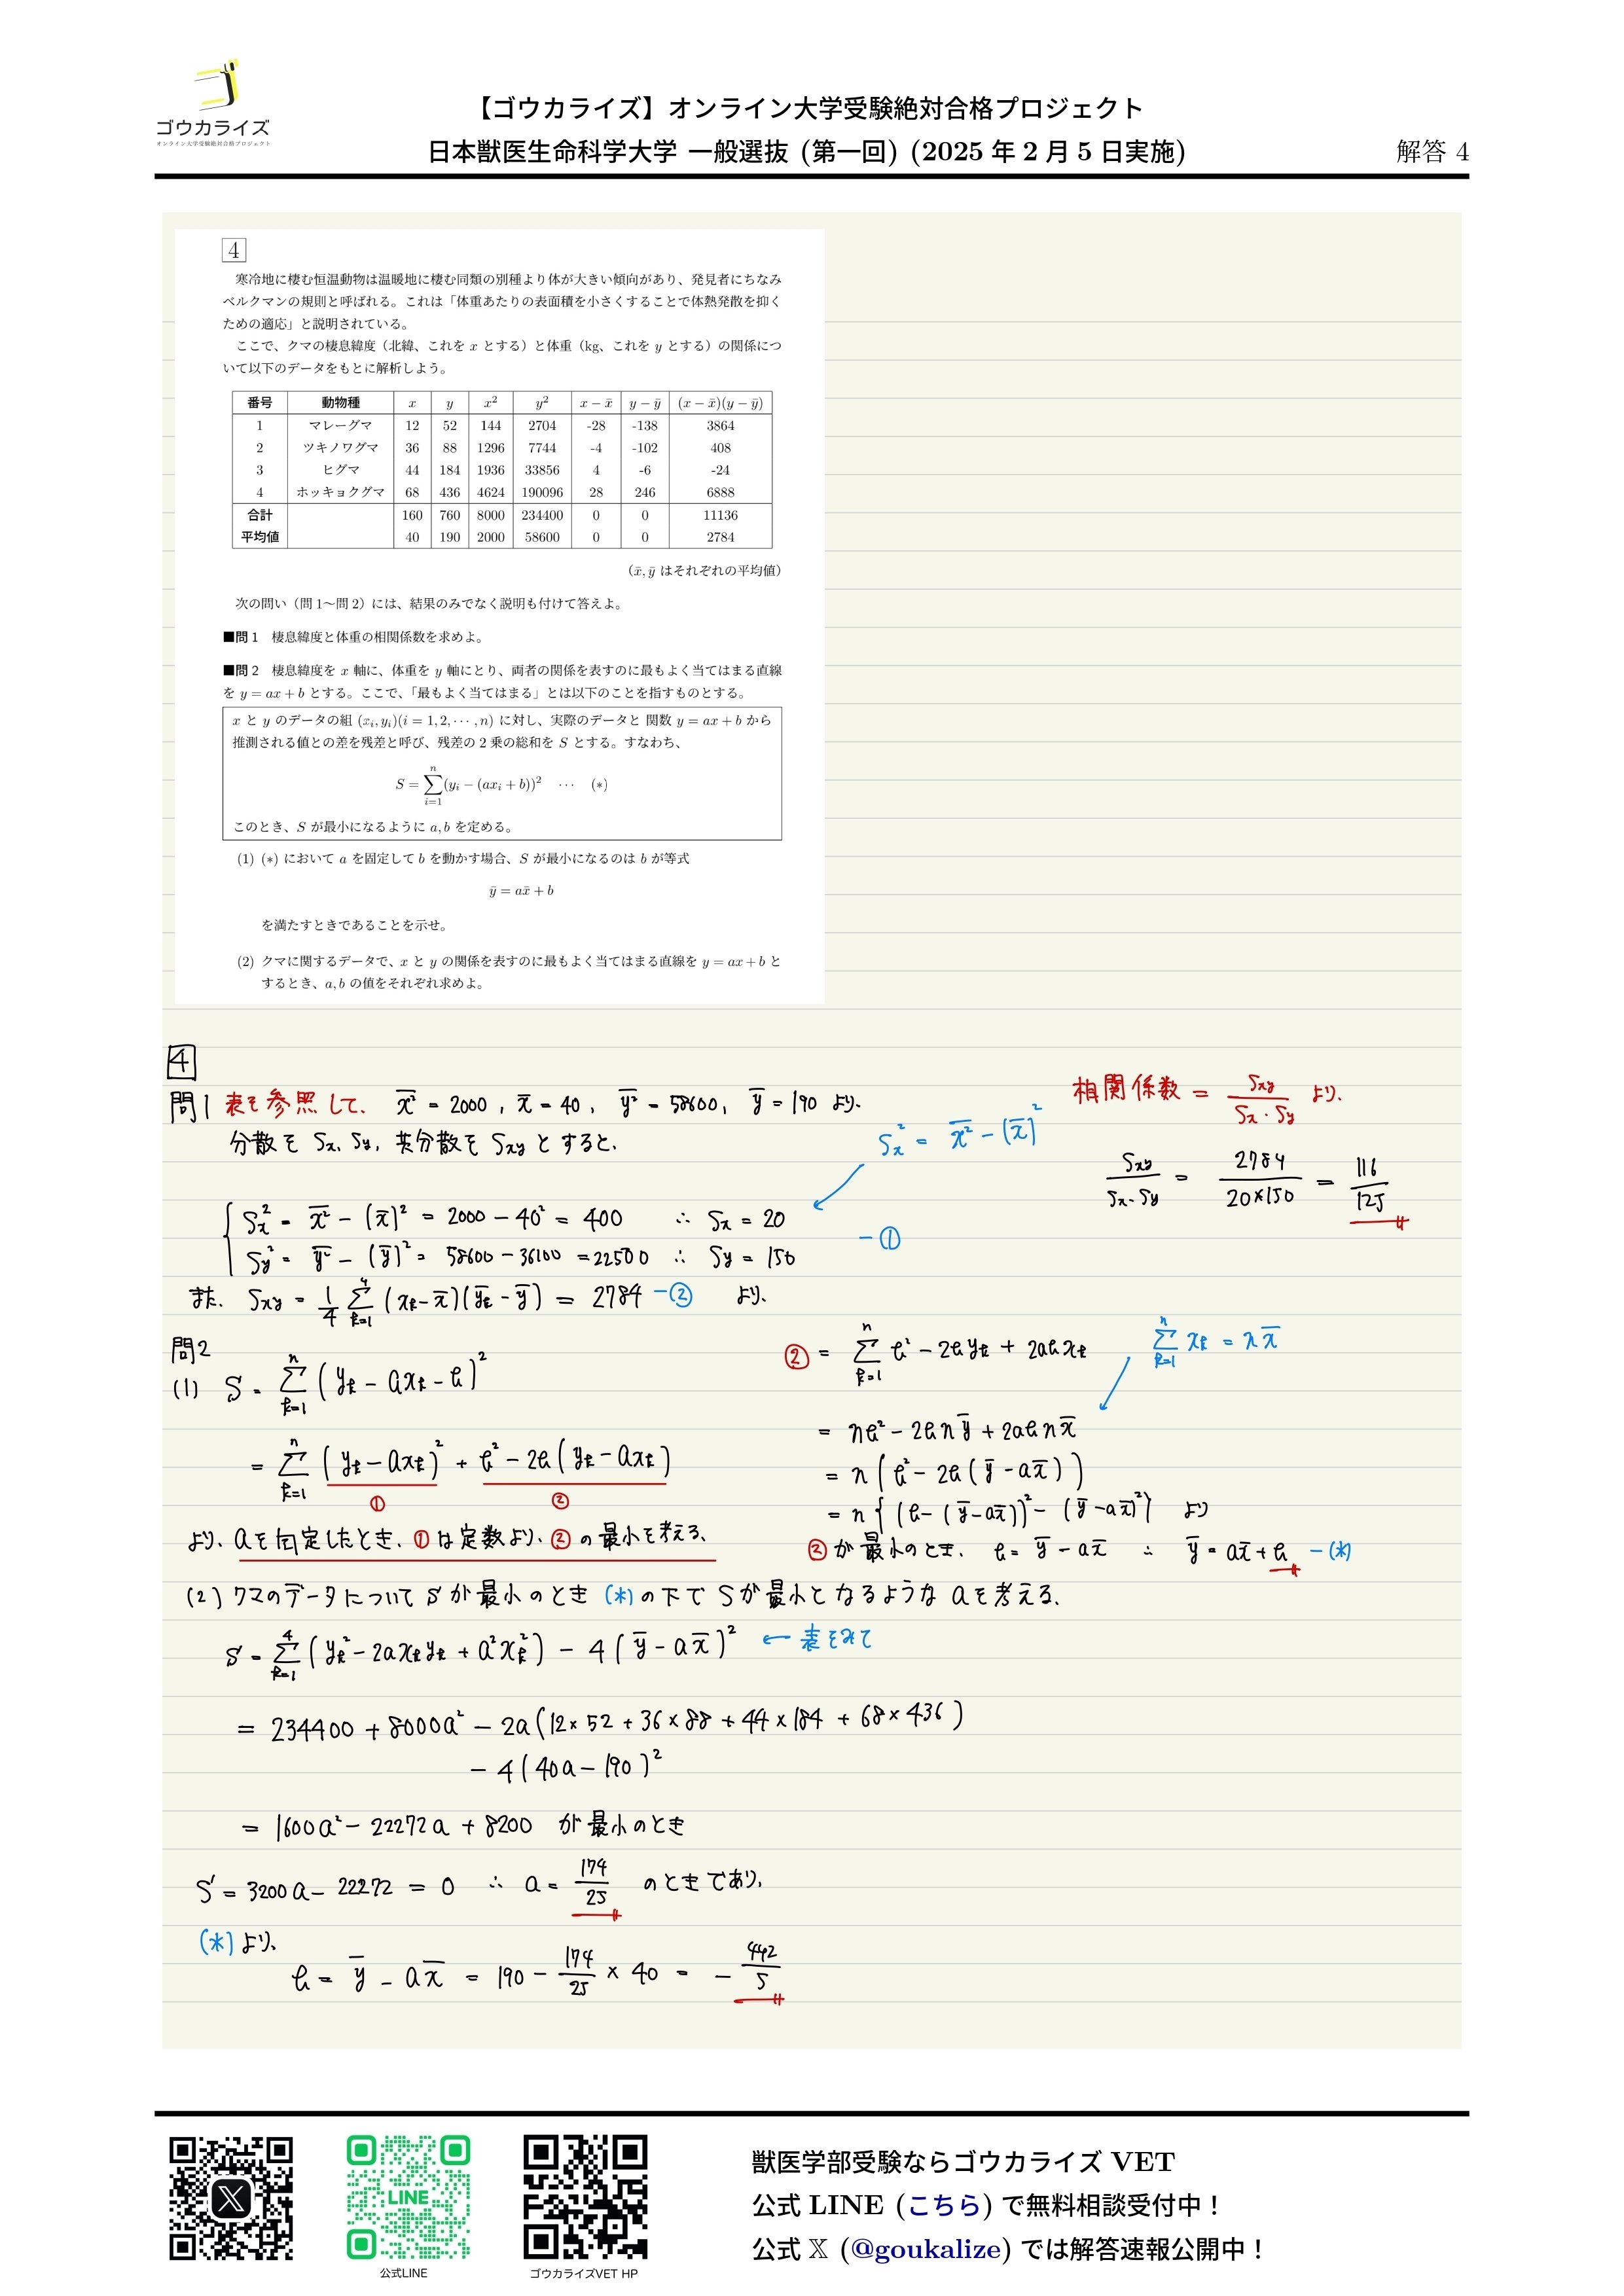 ゴウカライズ
オンライン大学受験絶対合格プロジェクト
【ゴウカライズ】オンライン大学受験絶対合格プロジェクト
日本獣医生命科学大学 一般選抜 (第一回) (2025 年 2 月 5 日実施)
解答 4
4
寒冷地に棲む恒温動物は温暖地に棲む同類の別種より体が大きい傾向があり、発見者にちなみ
ベルクマンの規則と呼ばれる。これは「体重あたりの表面積を小さくすることで体熱発散を抑く
ための適応」と説明されている。
ここで、クマの棲息緯度（北緯、これを x とする）と体重（kg、これを y とする）の関係につ
いて以下のデータをもとに解析しよう。
番号 動物種 x y x² y² x − x̄ y − ȳ (x − x̄)(y − ȳ)
1 マレーグマ 12 52 144 2704 -28 -138 3864
2 ツキノワグマ 36 88 1296 7744 -4 -102 408
3 ヒグマ 44 184 1936 33856 4 -6 -24
4 ホッキョクグマ 68 436 4624 190096 28 246 6888
合計 160 760 8000 234400 0 0 11136
平均値 40 190 2000 58600 0 0 2784
（x̄, ȳ はそれぞれの平均値）
次の問い（問 1〜問 2）には、結果のみでなく説明も付けて答えよ。
■問 1 棲息緯度と体重の相関係数を求めよ。
■問 2 棲息緯度を x 軸に、体重を y 軸にとり、両者の関係を表すのに最もよく当てはまる直線
を y = ax + b とする。ここで、「最もよく当てはまる」とは以下のことを指すものとする。
x と y のデータの組 (xᵢ, yᵢ)(i = 1, 2, ⋯ , n) に対し、実際のデータと 関数 y = ax + b から
推測される値との差を残差と呼び、残差の 2 乗の総和を S とする。すなわち、
S = Σ_{i=1}^{n} (yᵢ − (axᵢ + b))² ⋯ (∗)
このとき、S が最小になるように a, b を定める。
(1) (∗) において a を固定して b を動かす場合、S が最小になるのは b が等式
ȳ = ax̄ + b
を満たすときであることを示せ。
(2) クマに関するデータで、x と y の関係を表すのに最もよく当てはまる直線を y = ax + b と
するとき、a, b の値をそれぞれ求めよ。
4
問1 表を参照して、 \overline{x²} = 2000 , x̄ = 40 , \overline{y²} = 58600, ȳ = 190 より.
分散を Sx, Sy, 共分散を Sxy とすると、
Sx² = \overline{x²} − (x̄)²
Sx² = \overline{x²} − (x̄)² = 2000 − 40² = 400 ∴ Sx = 20
Sy² = \overline{y²} − (ȳ)² = 58600 − 36100 = 22500 ∴ Sy = 150
−①
また、 Sxy = 1/4 Σ_{k=1}^{4} (xk − x̄)(ȳk − ȳ) = 2784 −② より、
相関係数 = Sxy / Sx・Sy より、
Sxy / Sx・Sy = 2784 / 20×150 = 116 / 125
問2
(1) S = Σ_{k=1}^{n} (yk − axk − b)²
= Σ_{k=1}^{n} (yk − axk)² + b² − 2b(yk − axk)
① ②
より、aを固定したとき、①は定数より、②の最小を考える、
② = Σ_{k=1}^{n} b² − 2byk + 2abxk
Σ_{k=1}^{n} xk = nx̄
= nb² − 2bnȳ + 2abnx̄
= n(b² − 2b(ȳ − ax̄))
= n{(b − (ȳ − ax̄))² − (ȳ − ax̄)²} より
②が最小のとき、 b = ȳ − ax̄ ∴ ȳ = ax̄ + b −(*)
(2) クマのデータについて Sが最小のとき (*)の下で Sが最小となるような aを考える、
S = Σ_{k=1}^{4} (yk² − 2axkyk + a²xk²) − 4(ȳ − ax̄)² ← 表をみて
= 234400 + 8000a² − 2a(12×52 + 36×88 + 44×184 + 68×436)
− 4(40a − 190)²
= 1600a² − 22272a + 8200 が最小のとき
S' = 3200a − 22272 = 0 ∴ a = 174/25 のときであり、
(*)より、
b = ȳ − ax̄ = 190 − 174/25 × 40 = − 442/5
LINE
公式LINE
ゴウカライズVET HP
獣医学部受験ならゴウカライズ VET
公式 LINE (こちら) で無料相談受付中！
公式 𝕏 (@goukalize) では解答速報公開中！